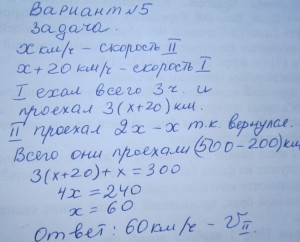 Вариант №5
Задача.
x км/ч - скорость II
x+20 км/ч - скорость I
I ехал всего 3 ч. и
проехал 3(x+20) км.
II проехал 2x - x т.к. вернулся.
Всего они проехали (500-200) км
3(x+20)+x=300
4x = 240
x = 60
Ответ: 60 км/ч - V II.